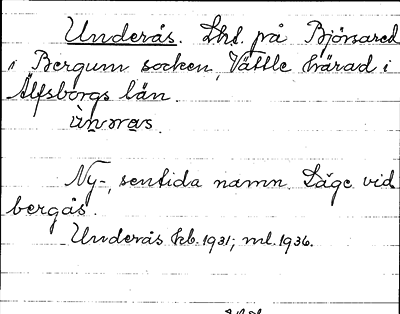 Underås. Lht. på Björsared
i Bergum socken, Vättle härad i
Älfsborgs län.
Ny-, sentida namn. Läge vid
bergås.
Underås kb. 1931; ml. 1936.